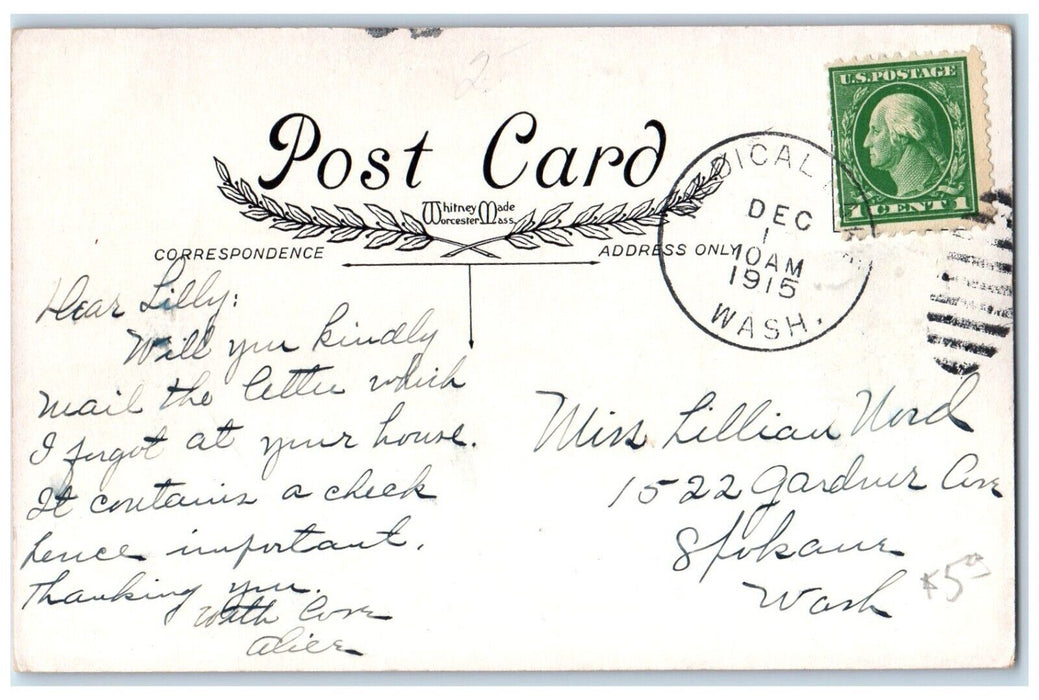 2
U.S. POSTAGE
1 CENT 1
Post Card
Whitney Made
Worcester Mass.
CORRESPONDENCE
ADDRESS ONLY
DICAL
DEC
1
10 AM
1915
WASH.
Dear Lilly:
Will you kindly
mail the letter which
I forgot at your house.
It contains a check
hence important.
Thanking you.
With Love
Alice
Miss Lillian Nord
1522 Gardner Ave
Spokane
Wash